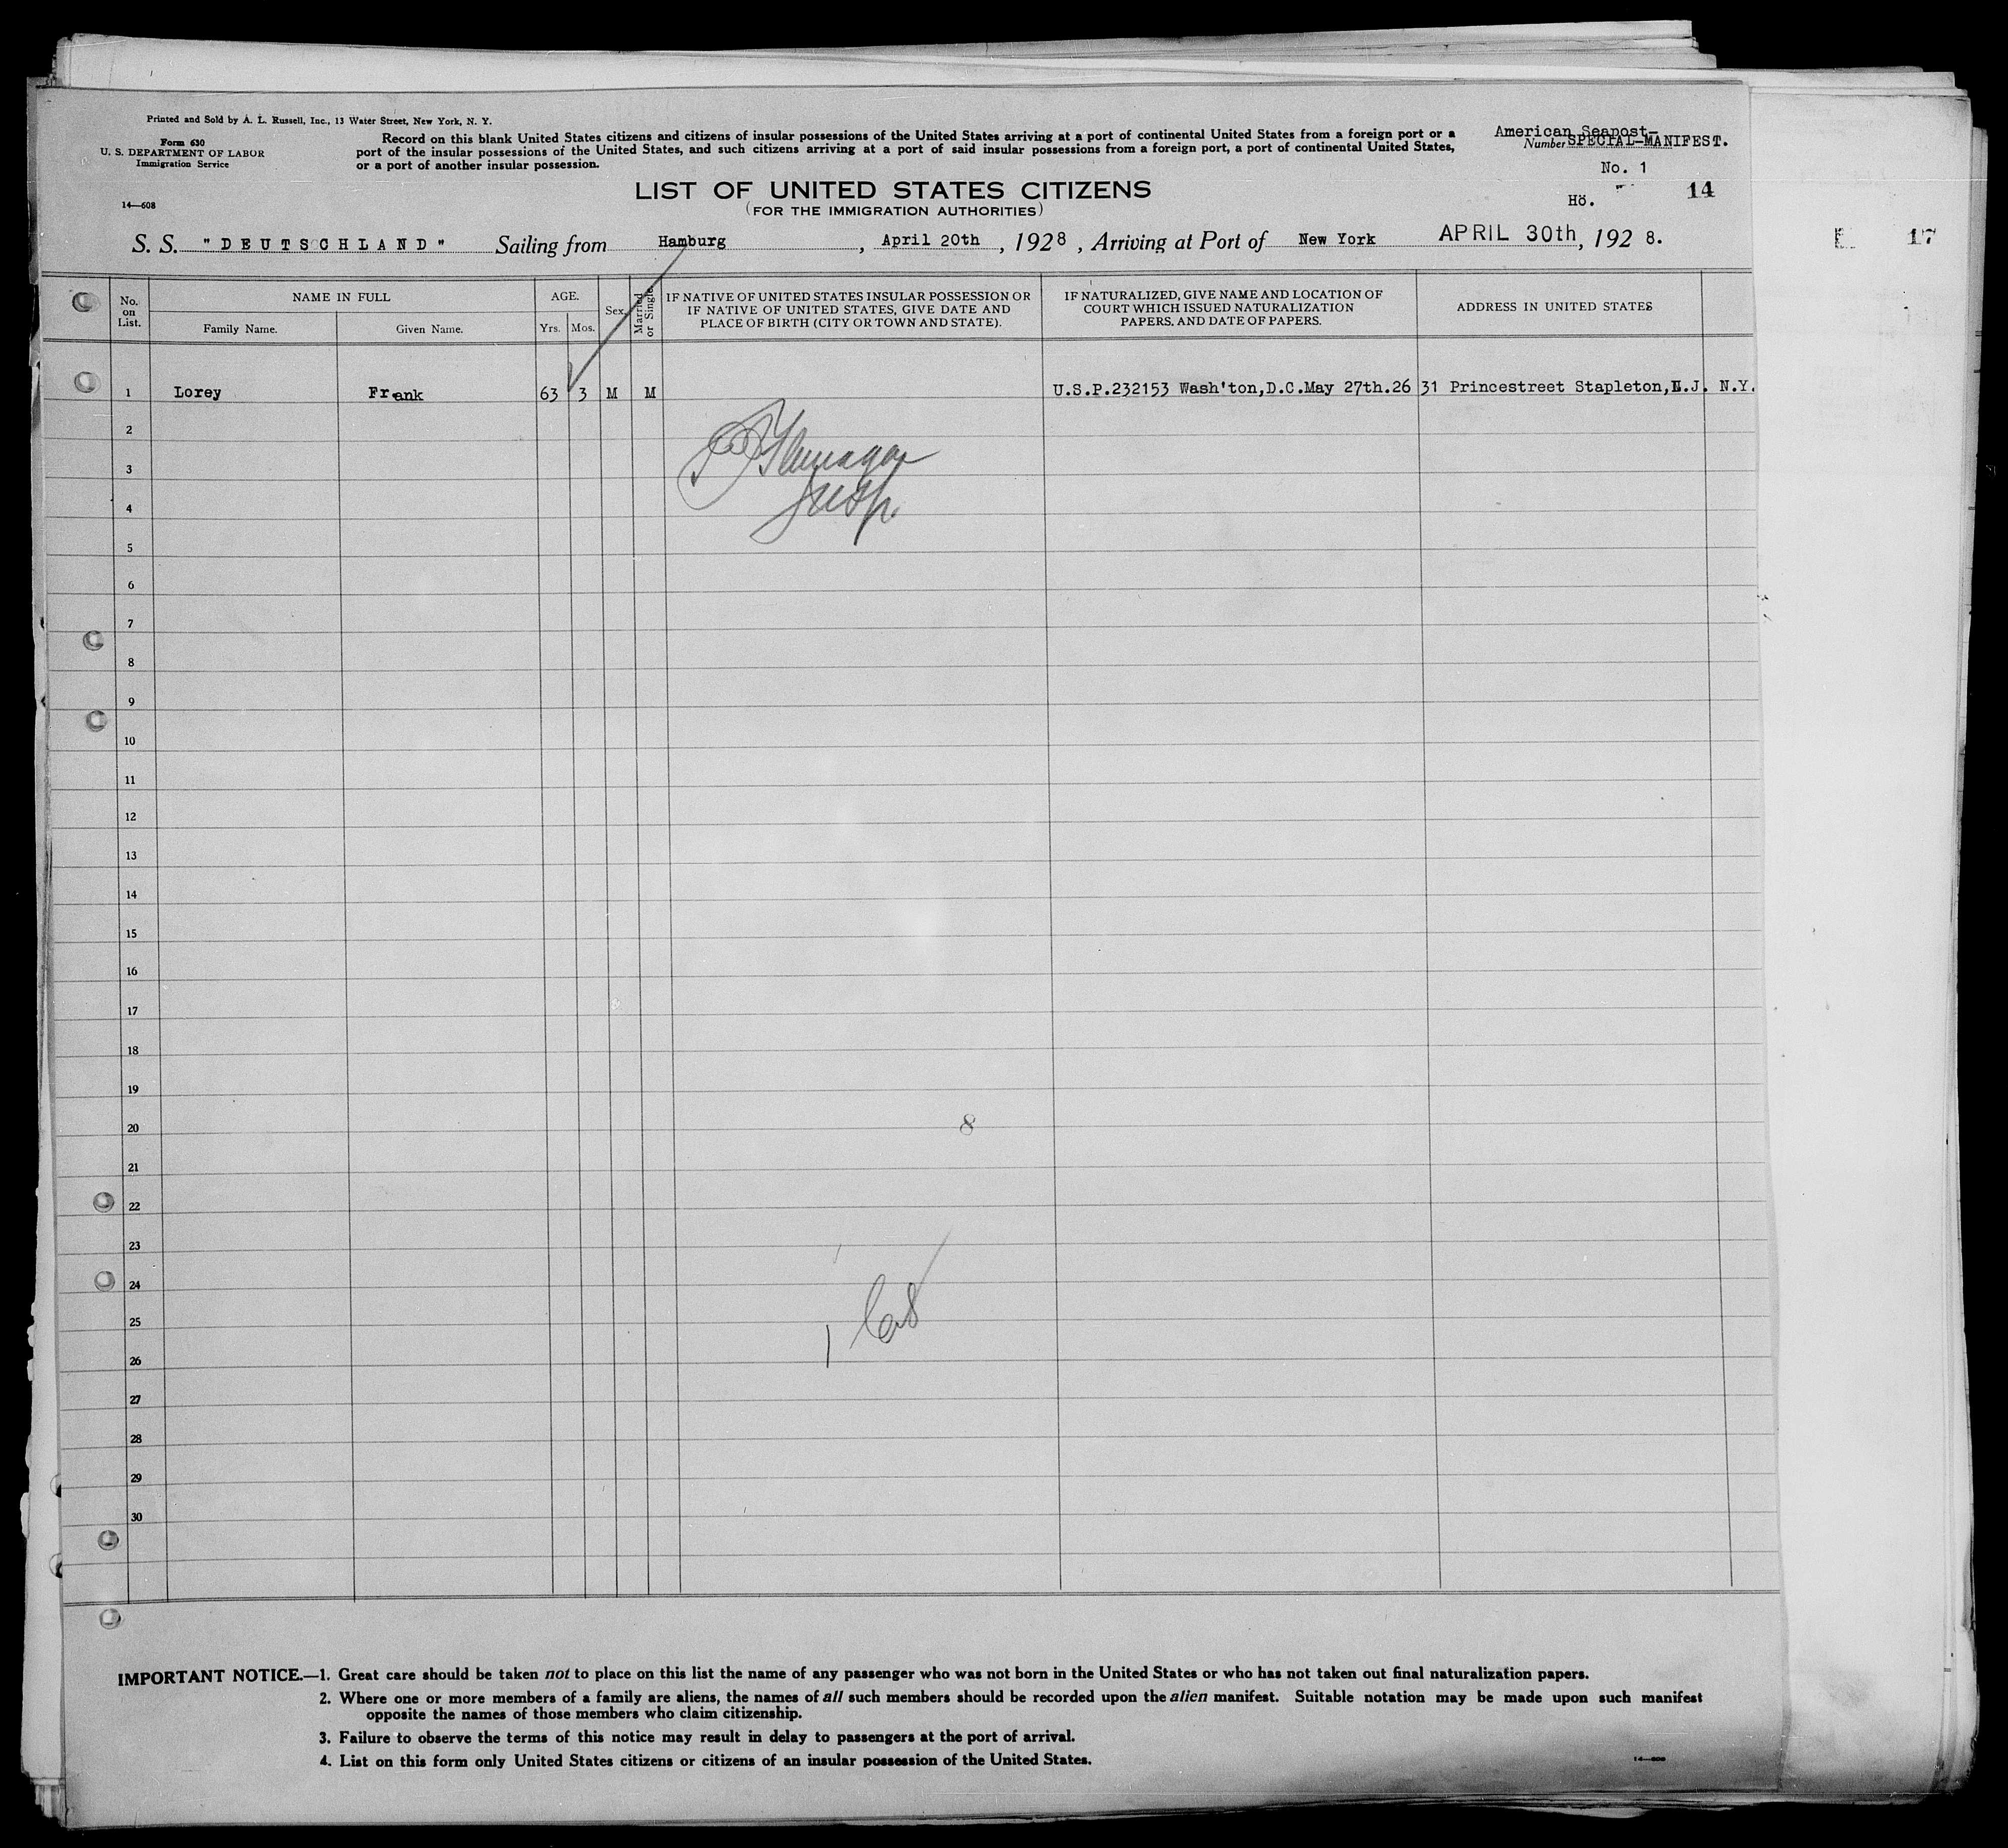 Printed and Sold by A. L. Russell, Inc., 13 Water Street, New York, N. Y.
Form 630
U. S. DEPARTMENT OF LABOR
Immigration Service
14—608
Record on this blank United States citizens and citizens of insular possessions of the United States arriving at a port of continental United States from a foreign port or a
port of the insular possessions of the United States, and such citizens arriving at a port of said insular possessions from a foreign port, a port of continental United States,
or a port of another insular possession.
American Seapost-
Number SPECIAL-MANIFEST.
No. 1
Hö.
14
LIST OF UNITED STATES CITIZENS
(FOR THE IMMIGRATION AUTHORITIES)
S. S. "DEUTSCHLAND" Sailing from Hamburg, April 20th, 1928, Arriving at Port of New York APRIL 30th, 1928.
17
No. on List.
NAME IN FULL
Family Name.
Given Name.
AGE.
Yrs.
Mos.
Sex
Married or Single
IF NATIVE OF UNITED STATES INSULAR POSSESSION OR
IF NATIVE OF UNITED STATES, GIVE DATE AND
PLACE OF BIRTH (CITY OR TOWN AND STATE).
IF NATURALIZED, GIVE NAME AND LOCATION OF
COURT WHICH ISSUED NATURALIZATION
PAPERS, AND DATE OF PAPERS.
ADDRESS IN UNITED STATES
1 Lorey Frank 63 3 M M U.S.P.232153 Wash'ton,D.C.May 27th.26 31 Princestreet Stapleton, N.Y.
2
3
Insp.
4
5
6
7
8
9
10
11
12
13
14
15
16
17
18
19
20 8
21
22
23
24
25
26
27
28
29
30
IMPORTANT NOTICE.—1. Great care should be taken not to place on this list the name of any passenger who was not born in the United States or who has not taken out final naturalization papers.
2. Where one or more members of a family are aliens, the names of all such members should be recorded upon the alien manifest. Suitable notation may be made upon such manifest
opposite the names of those members who claim citizenship.
3. Failure to observe the terms of this notice may result in delay to passengers at the port of arrival.
4. List on this form only United States citizens or citizens of an insular possession of the United States.
14—608